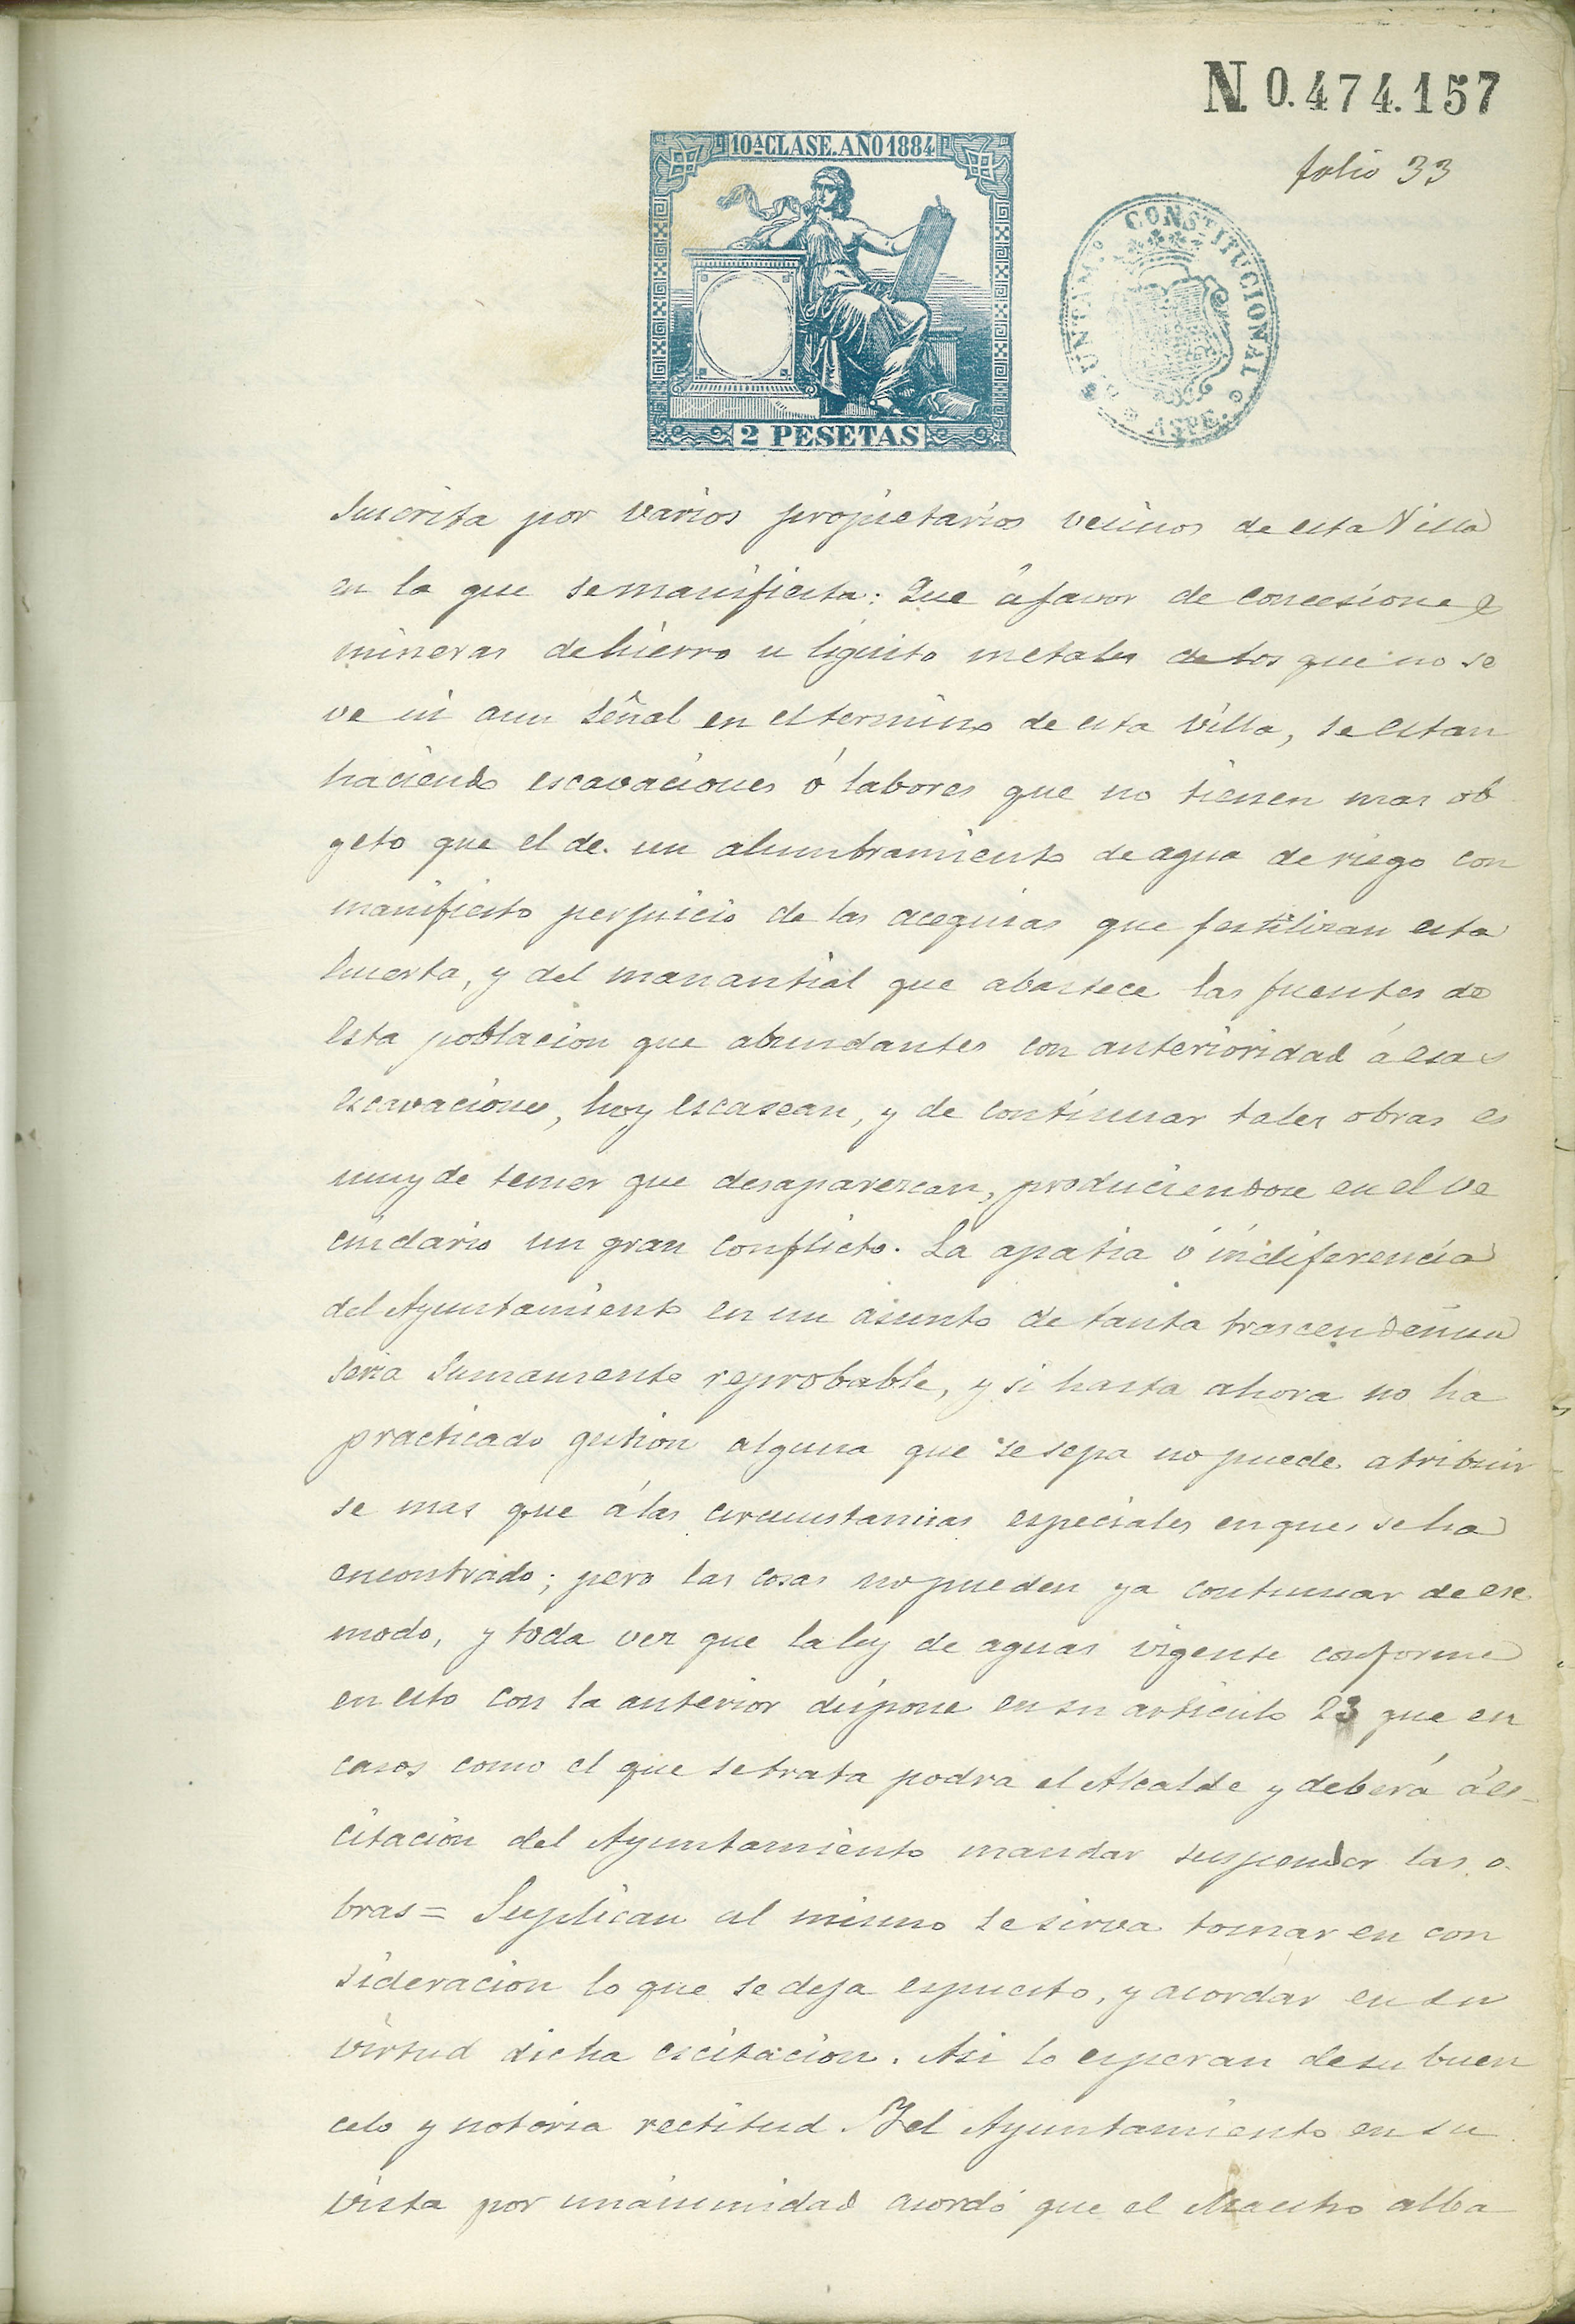 N. 0.474.157
folio 33
10ª CLASE. AÑO 1884
2 PESETAS
AYUNTAM.º CONSTITUCIONAL
ASPE.
suscrita por varios propietarios vecinos de esta Villa
en la que se manifiesta: Que á favor de concesiones
mineras de hierro u lignito metales de los que no se
ve ni aun señal en el termino de esta villa, se estan
haciendo escavaciones ó labores que no tienen mas ob
geto que el de un alumbramiento de agua de riego con
manifiesto perjuicio de las acequias que fertilizan esta
huerta, y del manantial que abastece las fuentes de
esta poblacion que abundantes con anterioridad á esas
escavaciones, hoy escasean, y de continuar tales obras es
muy de temer que desaparezcan, produciendose en el ve
cindario un gran conflicto. La apatia ó indiferencia
del Ayuntamiento en un asunto de tanta trascendencia
seria sumamente reprobable, y si hasta ahora no ha
practicado gestion alguna que se sepa no puede atribuir
se mas que á las circunstancias especiales en que se ha
encontrado; pero las cosas no pueden ya continuar de ese
modo, y toda vez que la ley de aguas vigente conforme
en esto con la anterior dispone en su articulo 23 que en
casos como el que se trata podra el Alcalde y deberá á es-
citacion del Ayuntamiento mandar suspender las o-
bras = Suplican al mismo se sirva tomar en con
sideracion lo que se deja espuesto, y acordar en su
virtud dicha escitacion. Asi lo esperan de su buen
celo y notoria rectitud. Y el Ayuntamiento en su
vista por unanimidad acordó que el Maestro alba